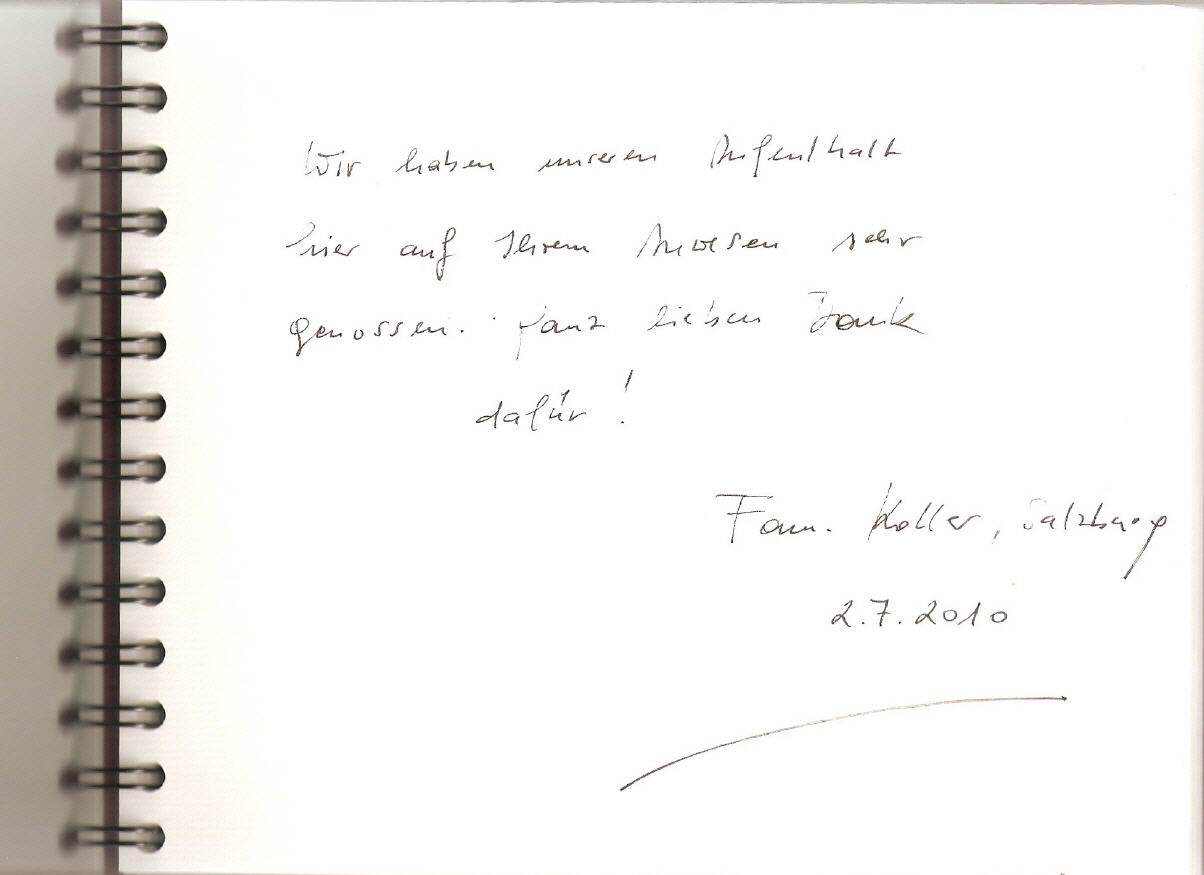 Wir haben unseren Aufenthalt
hier auf Ihrem Anwesen sehr
genossen. Ganz lieben Dank
dafür!
Fam. Koller, Salzburg
2.7.2010